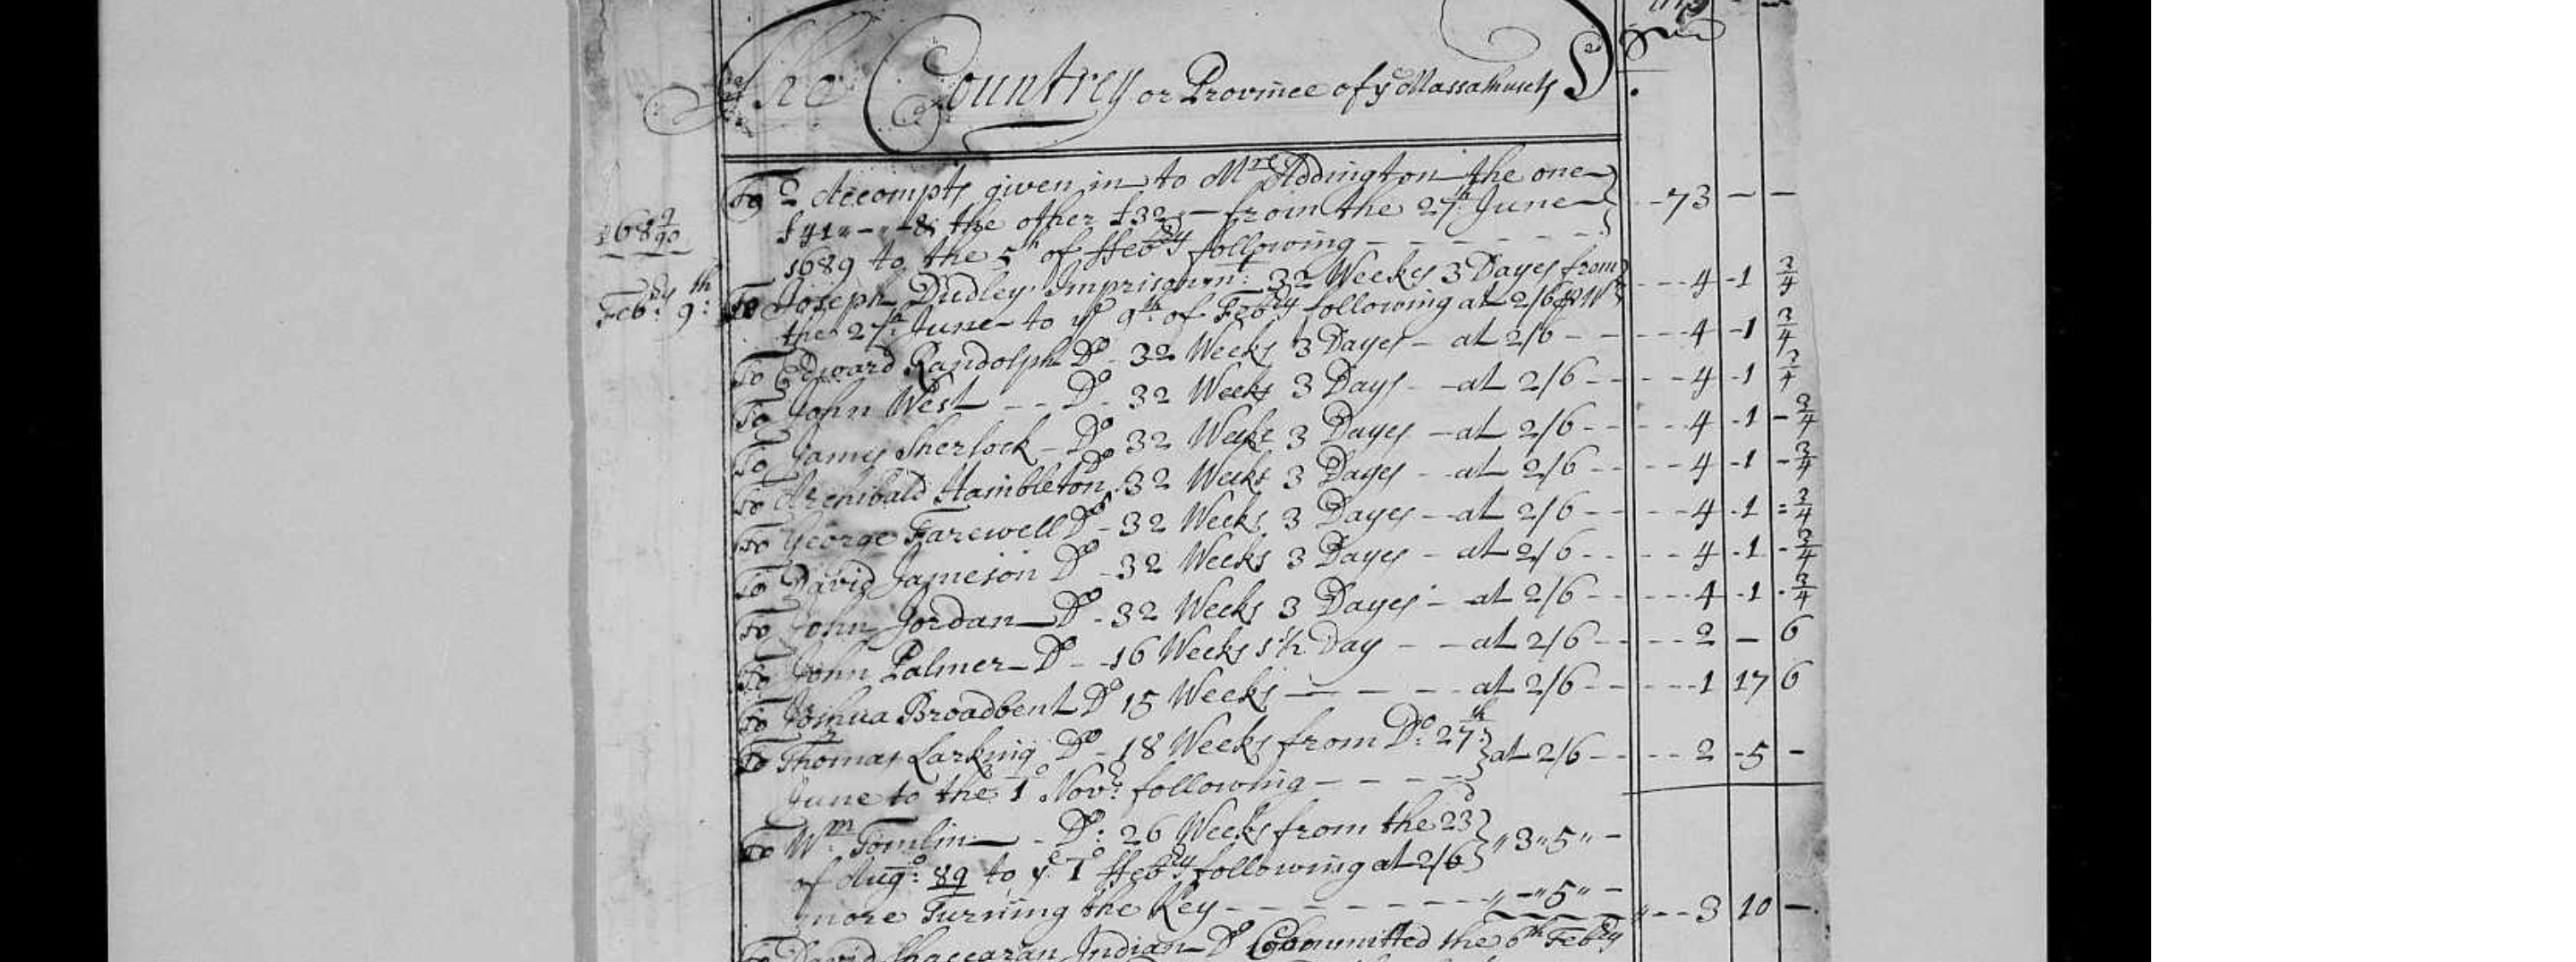 The Countrey or Province of yͤ Massathusets Dr.
To 2 Accompts given in to Mr Addington the one 73 — —
£41 " — " — & the other £32 " — from the 27th June
1689 to the 5th of ffebry following
1689/90
Febry 9th: To Joseph Dudley Imprisonmt: 32 Weekes 3 Dayes from 4 1 3/4
the 27th June to ye 9th of Febry following at 2/6 ⅌ Wk
To Edward Randolph Do 32 Weeks 3 Dayes at 2/6 4 1 3/4
To John West Do 32 Weeks 3 Days at 2/6 4 1 3/4
To James Sherlock Do 32 Weeks 3 Dayes at 2/6 4 1 3/4
To Archibald Hambleton Do 32 Weeks 3 Dayes at 2/6 4 1 3/4
To George Farewell Do 32 Weeks 3 Dayes at 2/6 4 1 3/4
To David Jameson Do 32 Weeks 3 Dayes at 2/6 4 1 3/4
To John Jordan Do 32 Weeks 3 Dayes at 2/6 4 1 3/4
To John Palmer Do 16 Weeks 1 1/2 Day at 2/6 2 — 6
To Joshua Broadbent Do 15 Weeks at 2/6 1 17 6
To Thomas Larking Do 18 Weeks from Do: 27th at 2/6 2 5 —
June to the 1o Novr following
To Wm Tomlin Do: 26 Weeks from the 23d " 3 " 5 " —
of Augo: 89 to ye 1o ffebry following at 2/6
more Turning the Key " — " 5 " — 3 10 —
To David Indian Do Committed the 6th Febry